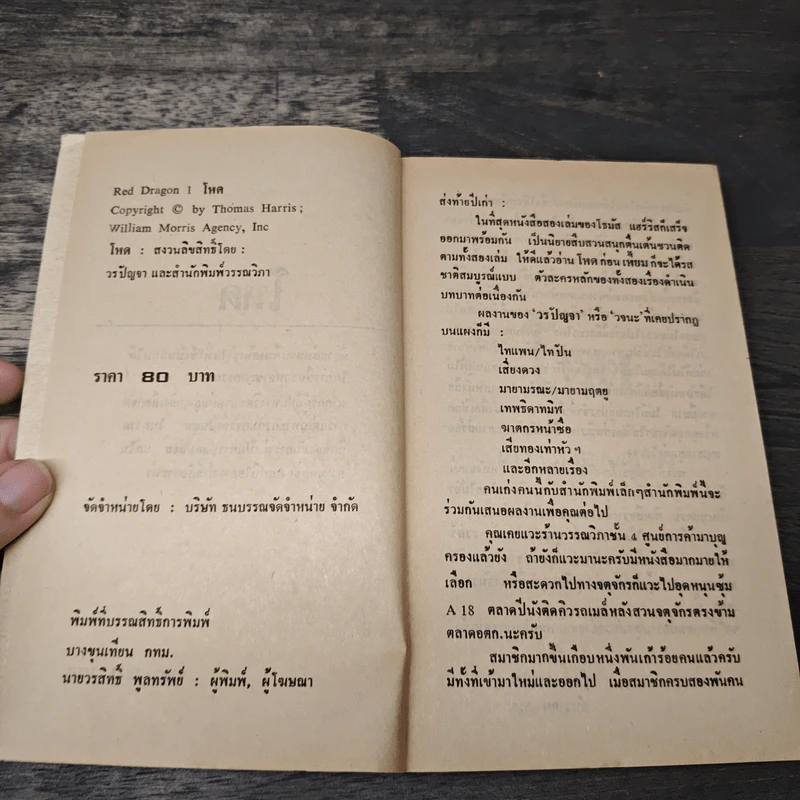 Red Dragon 1 โหด
Copyright © by Thomas Harris;
William Morris Agency, Inc
โหด : สงวนลิขสิทธิ์โดย :
วรปัญจา และสำนักพิมพ์วรรณวิภา
ราคา 80 บาท
จัดจำหน่ายโดย : บริษัท ธนบรรณจัดจำหน่าย จำกัด
พิมพ์ที่บรรณสิทธิ์การพิมพ์
บางขุนเทียน กทม.
นายวรสิทธิ์ พูลทรัพย์ : ผู้พิมพ์, ผู้โฆษณา
ส่งท้ายปีเก่า :
ในที่สุดหนังสือสองเล่มของโธมัส แฮร์ริสก็เสร็จ
ออกมาพร้อมกัน เป็นนิยายสืบสวนสนุกตื่นเต้นชวนติด
ตามทั้งสองเล่ม ให้ดีแล้วอ่าน โหด ก่อน เหี้ยม ก็จะได้รส
ชาติสมบูรณ์แบบ ตัวละครหลักของทั้งสองเรื่องดำเนิน
บทบาทต่อเนื่องกัน
ผลงานของ 'วรปัญจา' หรือ 'วจนะ' ที่เคยปรากฏ
บนแผงก็มี :
ไทแพน/ไทปัน
เสี่ยงดวง
มายามรณะ/มายามฤตยู
เทพธิดาทมิฬ
ฆาตกรหน้าซื่อ
เสี่ยทองเท่าหัว ฯ
และอีกหลายเรื่อง
คนเก่งคนนี้กับสำนักพิมพ์เล็กๆสำนักพิมพ์นี้จะ
ร่วมกันเสนอผลงานเพื่อคุณต่อไป
คุณเคยแวะร้านวรรณวิภาชั้น 4 ศูนย์การค้ามาบุญ
ครองแล้วยัง ถ้ายังก็แวะมานะครับมีหนังสือมากมายให้
เลือก หรือสะดวกไปทางจตุจักรก็แวะไปอุดหนุนซุ้ม
A 18 ตลาดปีนังติดคิวรถเมล์หลังสวนจตุจักรตรงข้าม
ตลาดอตก.นะครับ
สมาชิกมากขึ้นเกือบหนึ่งพันเก้าร้อยคนแล้วครับ
มีทั้งที่เข้ามาใหม่และออกไป เมื่อสมาชิกครบสองพันคน